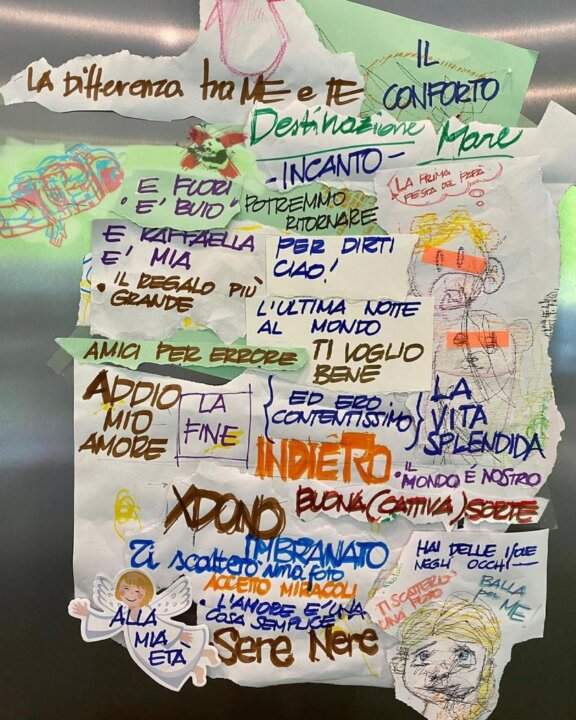 LA Differenza tra ME e TE
IL
CONFORTO
Destinazione Mare
- INCANTO -
E FUORI
E' BUIO
POTREMMO
RITORNARE
LA PRIMA
FESTA DEL PAPÀ
E RAFFAELLA
E' MIA
PER DIRTI
CIAO!
• IL REGALO PIÙ
GRANDE
L'ULTIMA NOTTE
AL MONDO
AMICI PER ERRORE
TI VOGLIO
BENE
ADDIO
MIO
AMORE
LA
FINE
ED ERO
CONTENTISSIMO
LA
VITA
SPLENDIDA
INDIETRO
• IL
MONDO È NOSTRO
XDONO
BUONA (CATTIVA) SORTE
IMBRANATO
Ti scatterò una foto
ACCETTO MIRACOLI
• L'AMORE E' UNA
COSA SEMPLICE
Sere Nere
ALLA
MIA
ETÀ
HAI DELLE ISOLE
NEGLI OCCHI
TI SCATTERÒ
UNA FOTO
BALLA
per ME